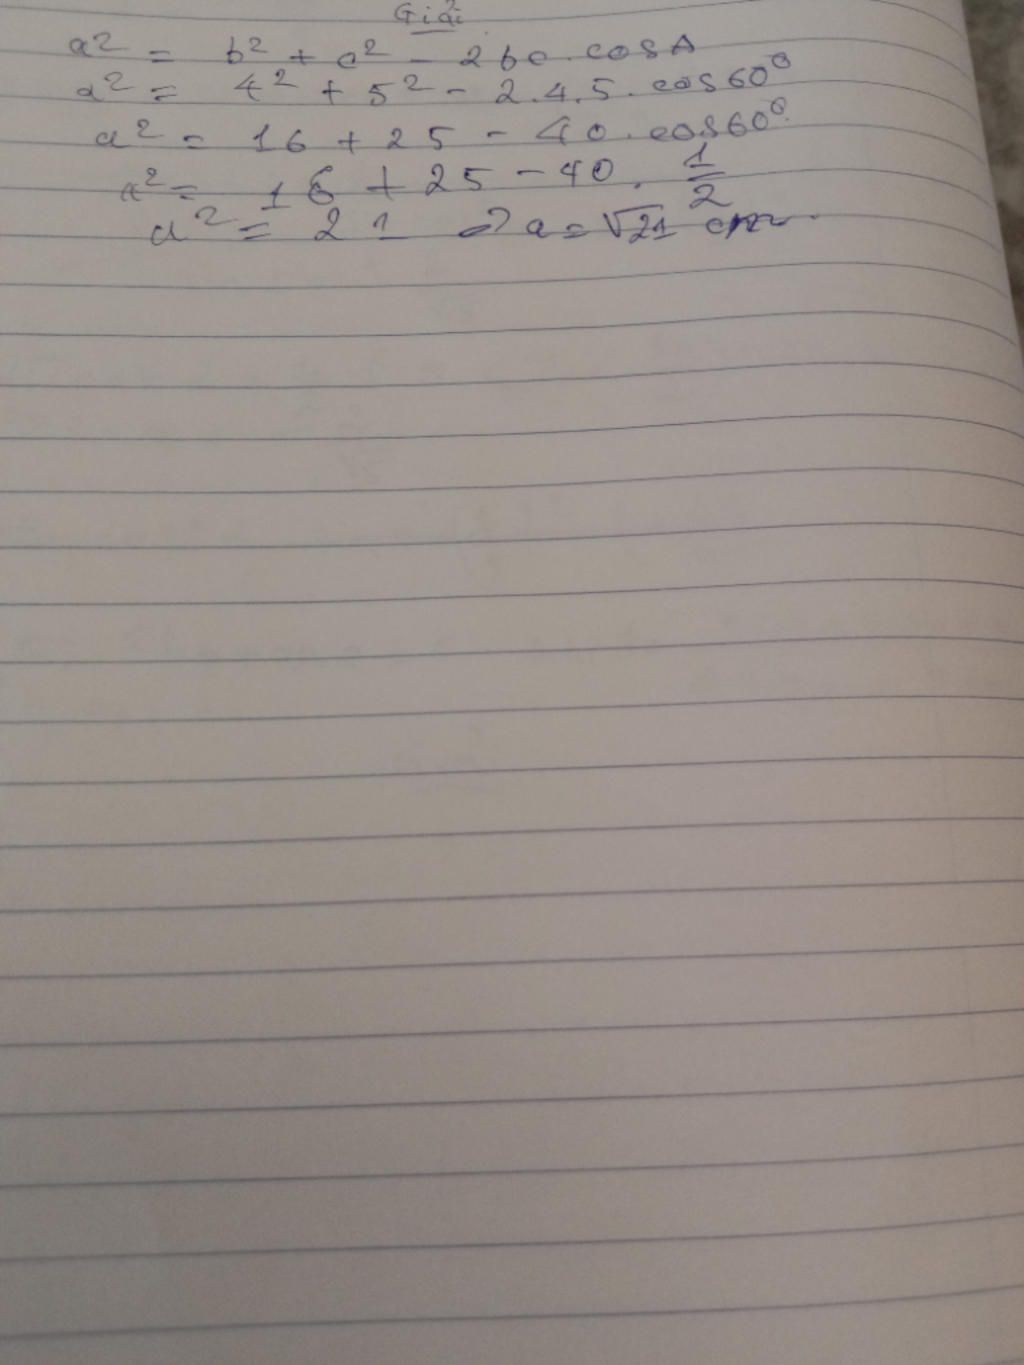 Giải
a² = b² + c² - 2bc.cosA
a² = 4² + 5² - 2.4.5.cos60⁰
a² = 16 + 25 - 40.cos60⁰.
a² = 16 + 25 - 40. 1/2
a² = 21 => a = √21 cm.